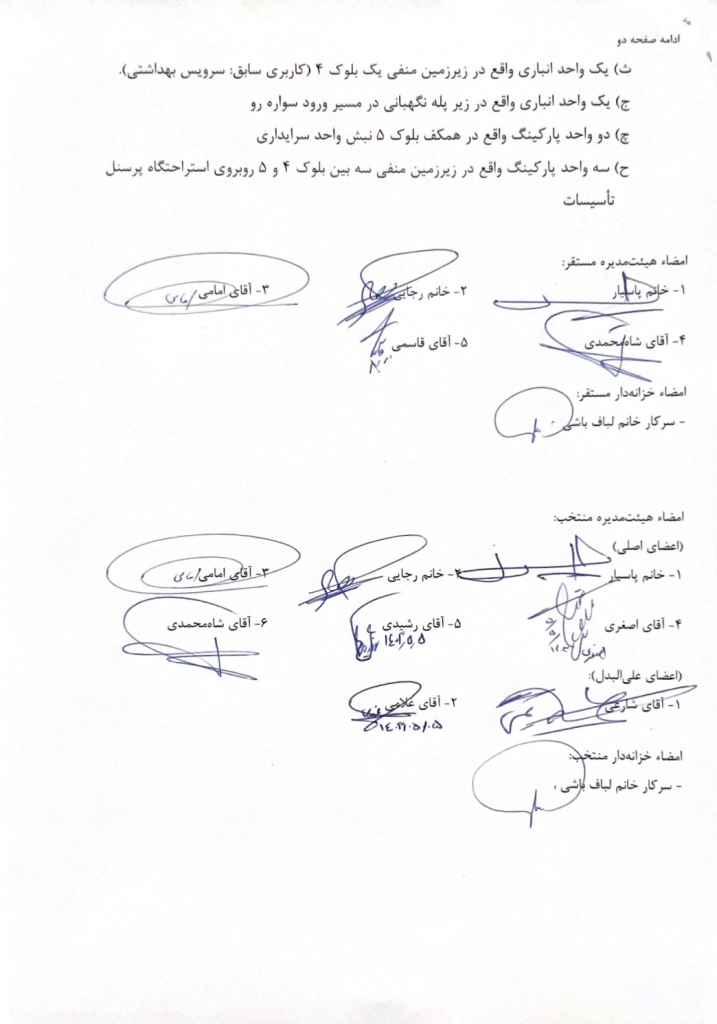 ادامه صفحه دو
ث) یک واحد انباری واقع در زیرزمین منفی یک بلوک ۴ (کاربری سابق: سرویس بهداشتی).
ج) یک واحد انباری واقع در زیر پله نگهبانی در مسیر ورود سواره رو
چ) دو واحد پارکینگ واقع در همکف بلوک ۵ نبش واحد سرایداری
ح) سه واحد پارکینگ واقع در زیرزمین منفی سه بین بلوک ۴ و ۵ روبروی استراحتگاه پرسنل
تأسیسات
امضاء هیئت‌مدیره مستقر:
۱- خانم پاسیار ۲- خانم رجایی ۳- آقای امامی
۴- آقای شاه‌محمدی ۵- آقای قاسمی
امضاء خزانه‌دار مستقر:
- سرکار خانم لباف باشی
امضاء هیئت‌مدیره منتخب:
(اعضای اصلی)
۱- خانم پاسیار ۲- خانم رجایی ۳- آقای امامی
۴- آقای اصغری ۵- آقای رشیدی ۶- آقای شاه‌محمدی
(اعضای علی‌البدل):
۱- آقای شارعی ۲- آقای غلامی
امضاء خزانه‌دار منتخب:
- سرکار خانم لباف باشی